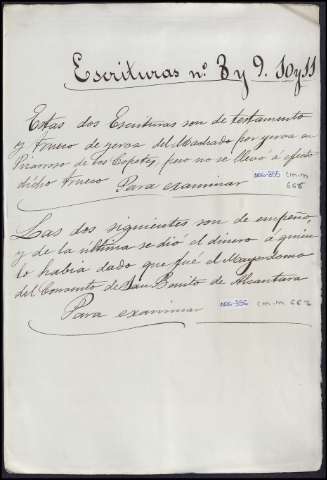 Escrituras nº. 8 y 9. 10 y 11
Estas dos Escrituras son de testamento
y trueco de yerva del Madrado por yerva en
de los Capotes, pero no se llevó a efecto
dicho trueco.
Para examinar
006-355 CM.M
668
Las dos siguientes son de empeño,
y de la última se dió el dinero a quien
lo había dado que fué el Mayordomo
del Convento de San Benito de Alcantara
Para examinar
006-356 CM.M 667